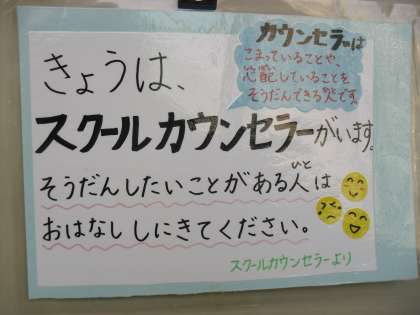 カウンセラーは
こまっていることや、
心配していることを
そうだんできる人です。
きょうは、
スクールカウンセラーがいます。
そうだんしたいことがある人は
ひと
おはなししにきてください。
スクールカウンセラーより